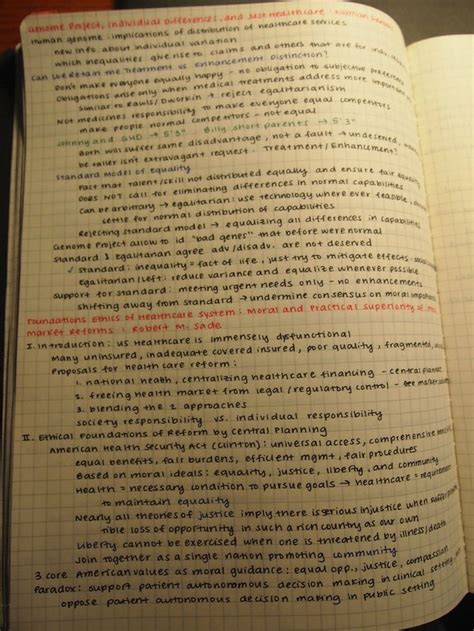 Genome Project, individual differences, and Just Healthcare: Norman Daniels
Human genome: implications of distribution of healthcare services
new info about individual variation
which inequalities give rise to claims and others that are for individual
Can we retain the Treatment vs Enhancement Distinction?
Don't make everyone equally happy - no obligation to subjective preferences
Obligations arise only when medical treatments address more important
Similar to Rawls/Dworkin → reject egalitarianism
Not medicines responsibility to make everyone equal competitors
make people normal competitors - not equal
Johnny and GHD → 5'3" Billy short parents → 5'3"
Both will suffer same disadvantage, not a fault → undeserved,
be taller isn't extravagant request. Treatment/Enhancement?
Standard Model of equality
Fact that talent/skill not distributed equally and ensure fair equality
Does NOT call for eliminating differences in normal capabilities
Can be arbitrary → egalitarian: use technology where ever feasible,
settle for normal distribution of capabilities
Rejecting standard model → equalizing all differences in capabilities
Genome Project allow to id "bad genes" that before were normal
Standard & egalitarian agree adv/disadv. are not deserved
✓ standard: inequality = fact of life, just try to mitigate effects - social
egalitarian/left: reduce variance and equalize whenever possible
Support for standard: meeting urgent needs only - no enhancements
shifting away from standard → undermine consensus on moral importance
Foundations Ethics of Healthcare System: Moral and Practical Superiority of
Market Reforms: Robert M. Sade
I. Introduction: US Healthcare is immensely dysfunctional
many uninsured, inadequate covered insured, poor quality, fragmented,
Proposals for health care reform:
1. national health, centralizing healthcare financing - central planner
2. freeing health market from legal/regulatory control - free market
3. blending the 2 approaches
society responsibility vs. individual responsibility
II. Ethical Foundations of Reform by Central Planning
American Health Security Act (Clinton): universal access, comprehensive
equal benefits, fair burdens, efficient mgmt, fair procedures
Based on moral ideals: equality, justice, liberty, and community
Health = necessary condition to pursue goals → healthcare = requirement
to maintain equality
Nearly all theories of justice imply there is serious injustice when suffer
tible loss of opportunity in such a rich country as our own
Liberty cannot be exercised when one is threatened by illness/death
Join together as a single nation promoting community
3 core American values as moral guidance: equal opp., justice, compassion
Paradox: support patient autonomous decision making in clinical setting
oppose patient autonomous decision making in public setting